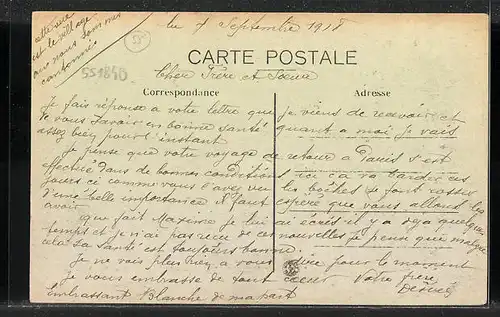 cette vue
est le village
ou nous sommes
cantonnés
le 7 Septembre 1918
CARTE POSTALE
551840
Cher Frère et Soeur
Correspondance
Adresse
Je fais réponse a votre lettre que je viens de recevoir et
de vous savoir en bonne santé quant a moi je vais
assez bien pour l'instant
Je pense que votre voyage de retour a Paris s'est
effectué dans de bonnes conditions ici ca va barder ces
jours ci comme vous l'avez vu les boches se font rosser
d'une belle importance il faut espéré que vous allons les
avoir
que fait Maxime je lui ai écris il y a deja quelque
temps et je n'ai pas recu de ces nouvelles je pense que malgré
cela sa santé est toujours bonne
Je ne vais plus rien a vous dire pour le moment
Je vous embrasse de tout coeur Votre frère
Embrassant Blanche de ma part